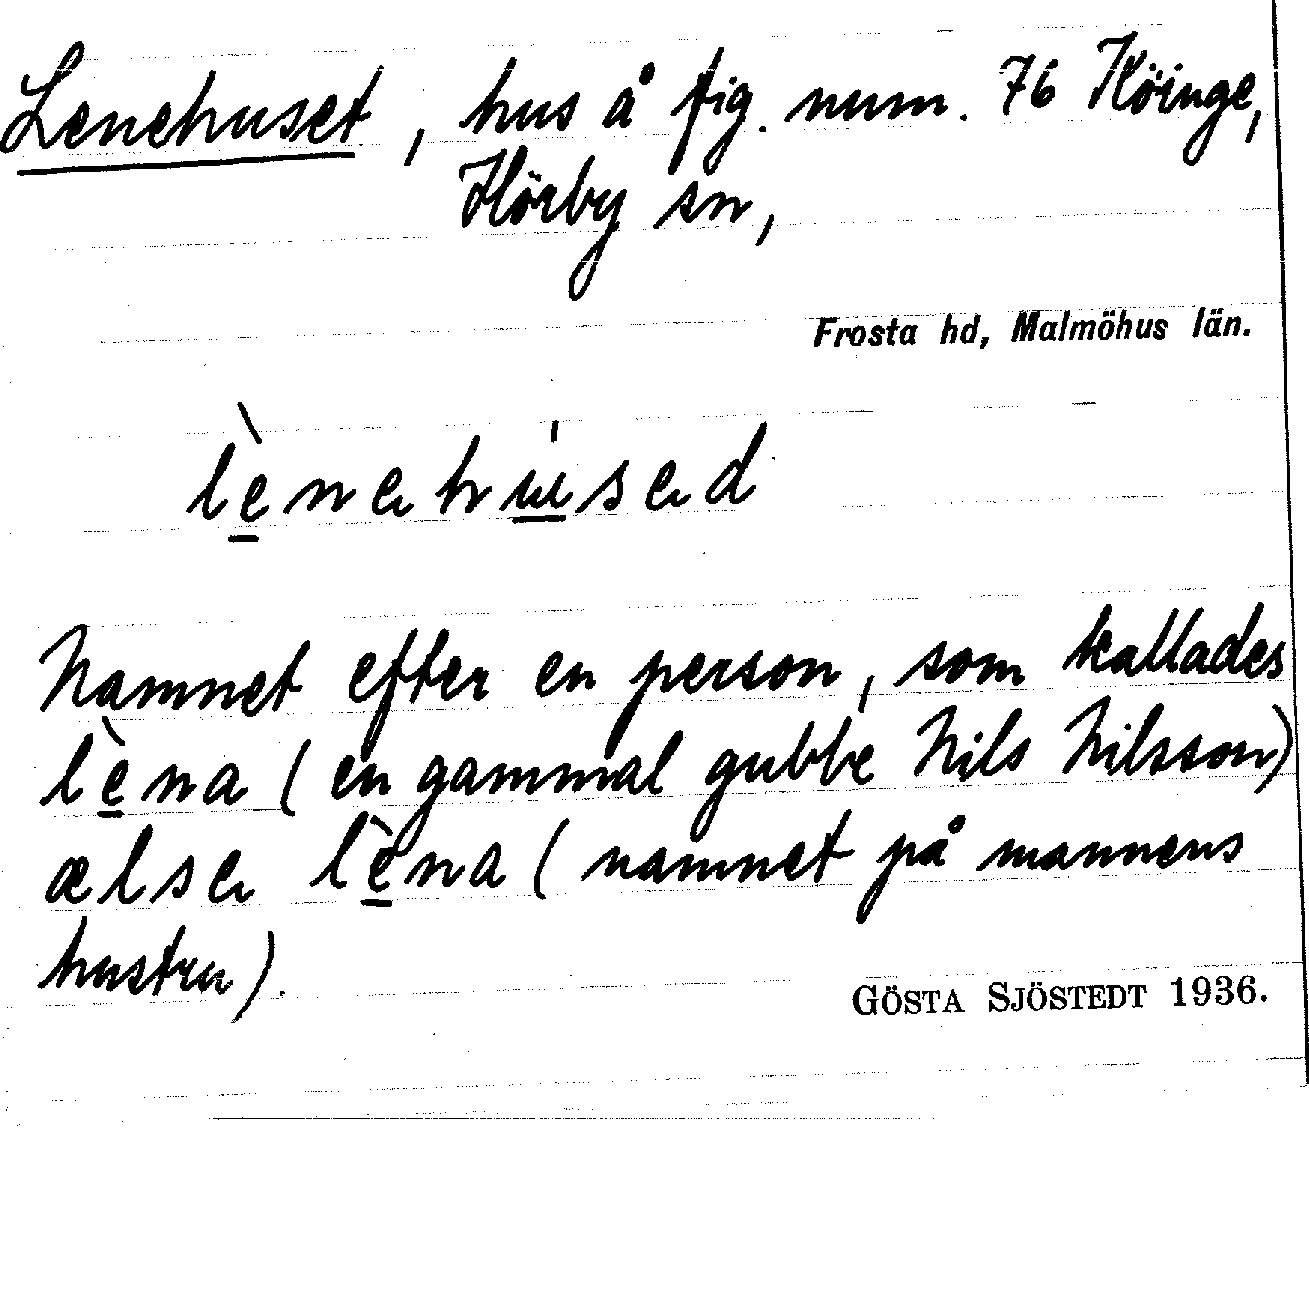 Lenehuset, hus å fig. num. 76 Köinge,
Hörby sn,
Frosta hd, Malmöhus län.
lènehu̍sed
Namnet efter en person, som kallades
lèna (en gammal gubbe Nils Nilsson)
ælse lèna (namnet på mannens
hustru).
GÖSTA SJÖSTEDT 1936.